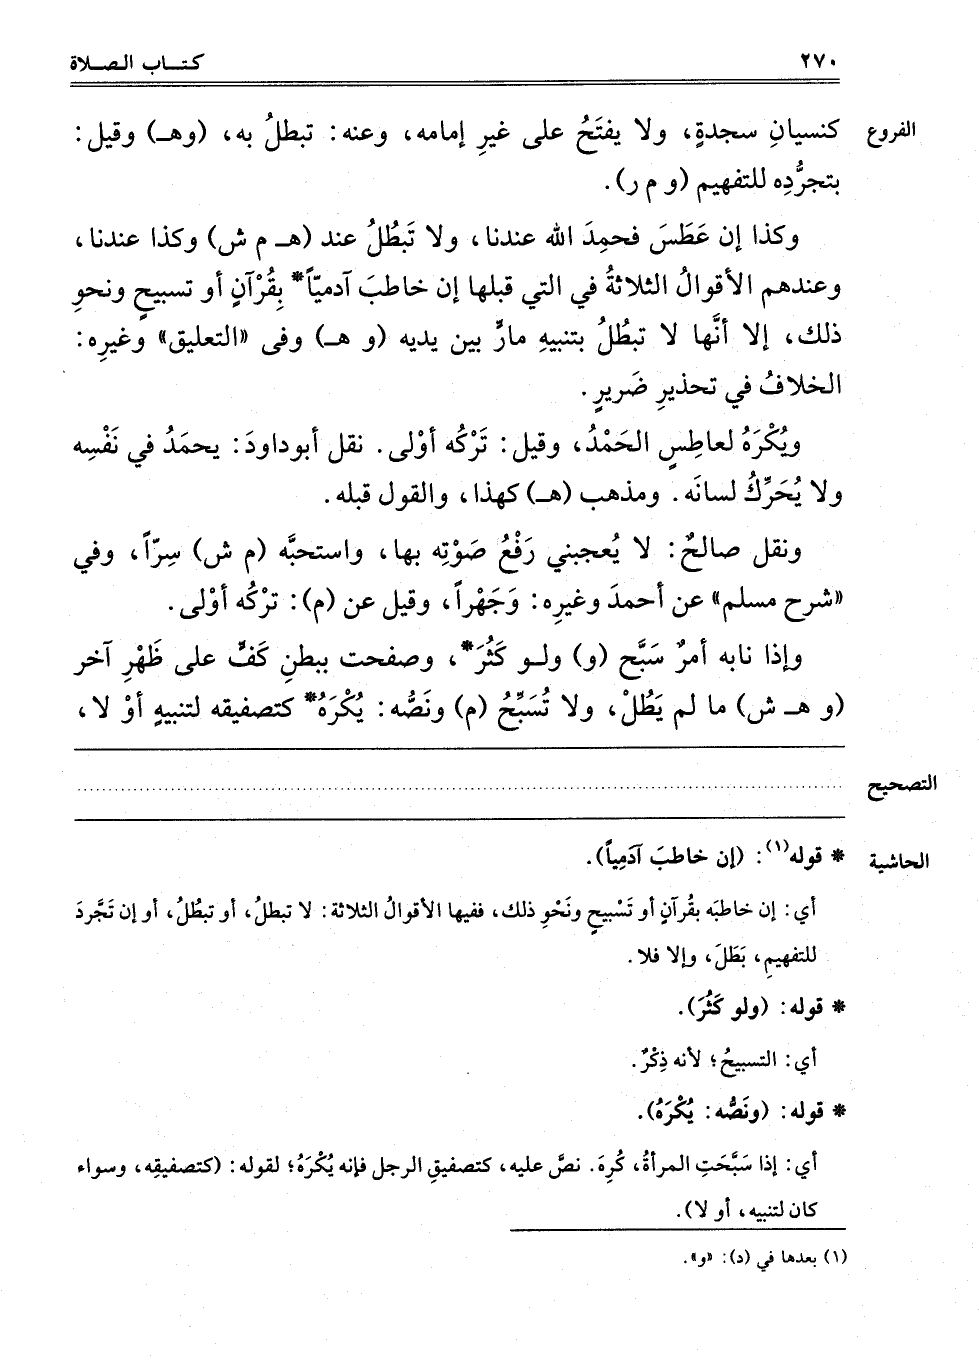 ٢٧٠ كتـــاب الـصـــلاة
الفروع كنسيانِ سجدةٍ، ولا يفتَحُ على غيرِ إمامه، وعنه: تبطلُ به، (وهـ) وقيل:
بتجرُّدِه للتفهيم (و م ر).
وكذا إن عَطَسَ فحمِدَ الله عندنا، ولا تَبطُلُ عند (هـ م ش) وكذا عندنا،
وعندهم الأقوالُ الثلاثةُ في التي قبلها إن خاطبَ آدميّاً* بِقُرْآنٍ أو تسبيحٍ ونحوِ
ذلك، إلا أنَّها لا تبطُلُ بتنبيهِ مارٍّ بين يديه (و هـ) وفى «التعليق» وغيرِه:
الخلافُ في تحذيرِ ضَريرٍ.
ويُكْرَهُ لعاطِسٍ الحَمْدُ، وقيل: تَرْكُه أوْلى. نقل أبوداودَ: يحمَدُ في نَفْسِه
ولا يُحَرِّكُ لسانَه. ومذهب (هـ) كهذا، والقول قبله.
ونقل صالحٌ: لا يُعجبني رَفْعُ صَوْتِه بها، واستحبَّه (م ش) سِرّاً، وفي
«شرح مسلم» عن أحمدَ وغيرِه: وَجَهْراً، وقيل عن (م): تركُه أوْلى.
وإذا نابه أمرٌ سَبَّح (و) ولـو كَثُرَ*، وصفحت ببطنِ كَفٍّ على ظَهْرِ آخر
(و هـ ش) ما لم يَطُلْ، ولا تُسَبِّحُ (م) ونَصُّه: يُكْرَهُ* كتصفيقه لتنبيهٍ أوْ لا،
التصحيح ........................................
الحاشية * قوله(١): (إن خاطبَ آدَمِياً).
أي: إن خاطبَه بقُرآنٍ أو تَسْبيحٍ ونَحْوِ ذلك، ففيها الأقوالُ الثلاثة: لا تبطلُ، أو تبطُلُ، أو إن تَجَّردَ
للتفهيمِ، بَطَلَ، وإلا فلا.
* قوله: (ولو كَثُرَ).
أي: التسبيحُ؛ لأنه ذِكْرٌ.
* قوله: (ونَصُّه: يُكْرَهُ).
أي: إذا سَبَّحَتِ المرأةُ، كُرِهَ. نصَّ عليه، كتصفيقِ الرجل فإنه يُكْرَهُ؛ لقوله: (كتصفيقِه، وسواء
كان لتنبيه، أو لا).
(١) بعدها في (د): «و».